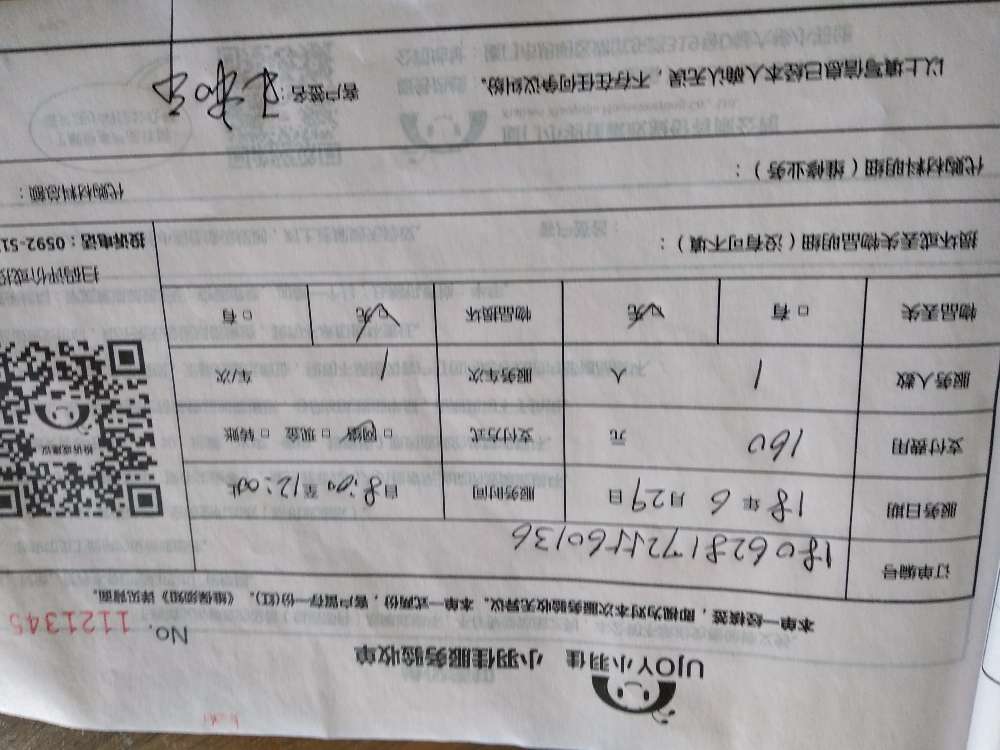 UJOY小羽佳 小羽佳服务验收单
No. 1121345
本单一经核签,即视为对本次服务验收无异议。本单一式两份,客户留存一份(红)。《维保须知》详见背面。
订单编号
服务日期 18年 6 月 29 日 服务时间 自 8:00 至 12:00 止
支付费用 160 元 支付方式 □ 网络 □ 现金 □ 转账
服务人数 1 人 服务车次 1 车/次
物品丢失 □ 有 □ 无 物品损坏 □ 无 □ 有
投诉或建议
扫码评价或投
损坏或丢失物品明细(没有可不填):
投诉电话:0592-51
代购材料明细(维修业务): 代购材料总额:
以上填写信息已经本人确认无误,不存在任何争议纠纷。 客户签名: